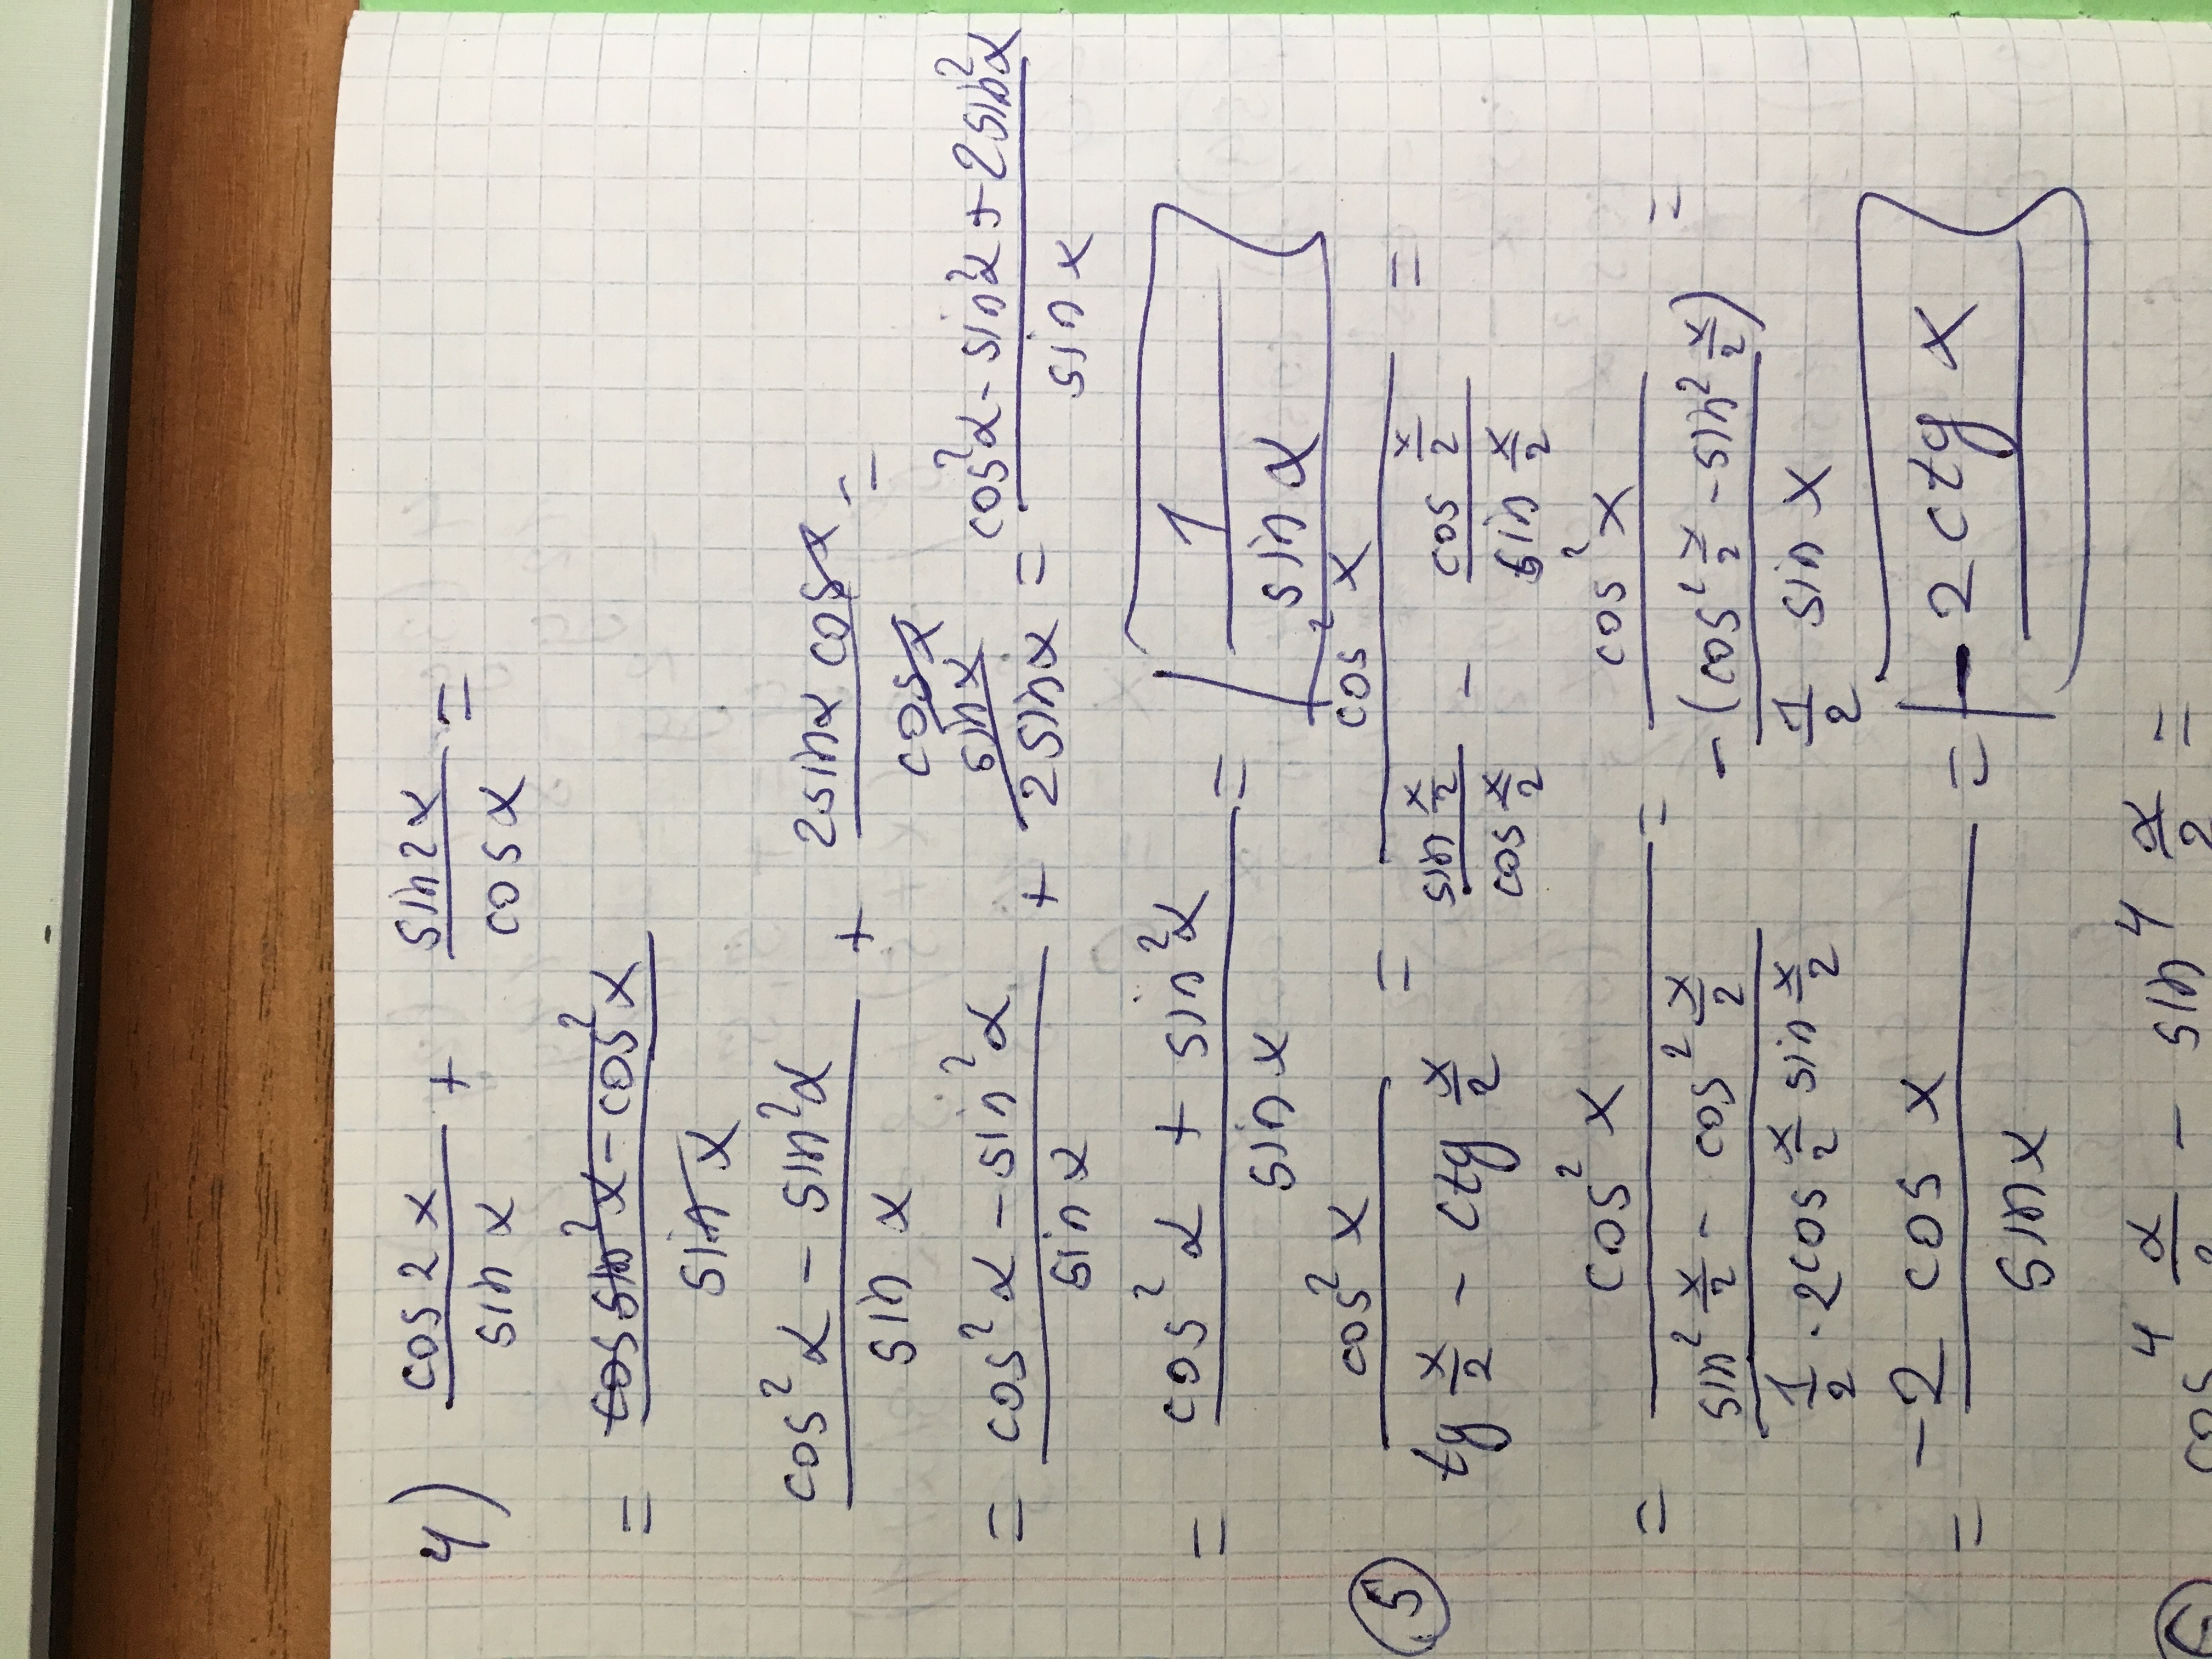 4) cos 2x / sin α + sin 2x / cos α =
= cos sin² x - cos² x / sin x
cos² α - sin² α / sin x + 2 sin α cos x / cos x =
= cos² α - sin² α / sin x + sin x / 2 sin x = cos² α - sin² α + 2 sin² α / sin x
= cos² α + sin² α / sin x = 1 / sin α
5 cos² x / tg x/2 - ctg x/2 = cos² x / sin x/2 / cos x/2 - cos x/2 / sin x/2 =
= cos² x / sin² x/2 - cos² x/2 / 1/2 · 2 cos x/2 sin x/2 = cos² x / - (cos² x/2 - sin² x/2) / 1/2 sin x =
= -2 cos x / sin x = -2 ctg x
cos⁴ α/2 - sin⁴ α/2 =